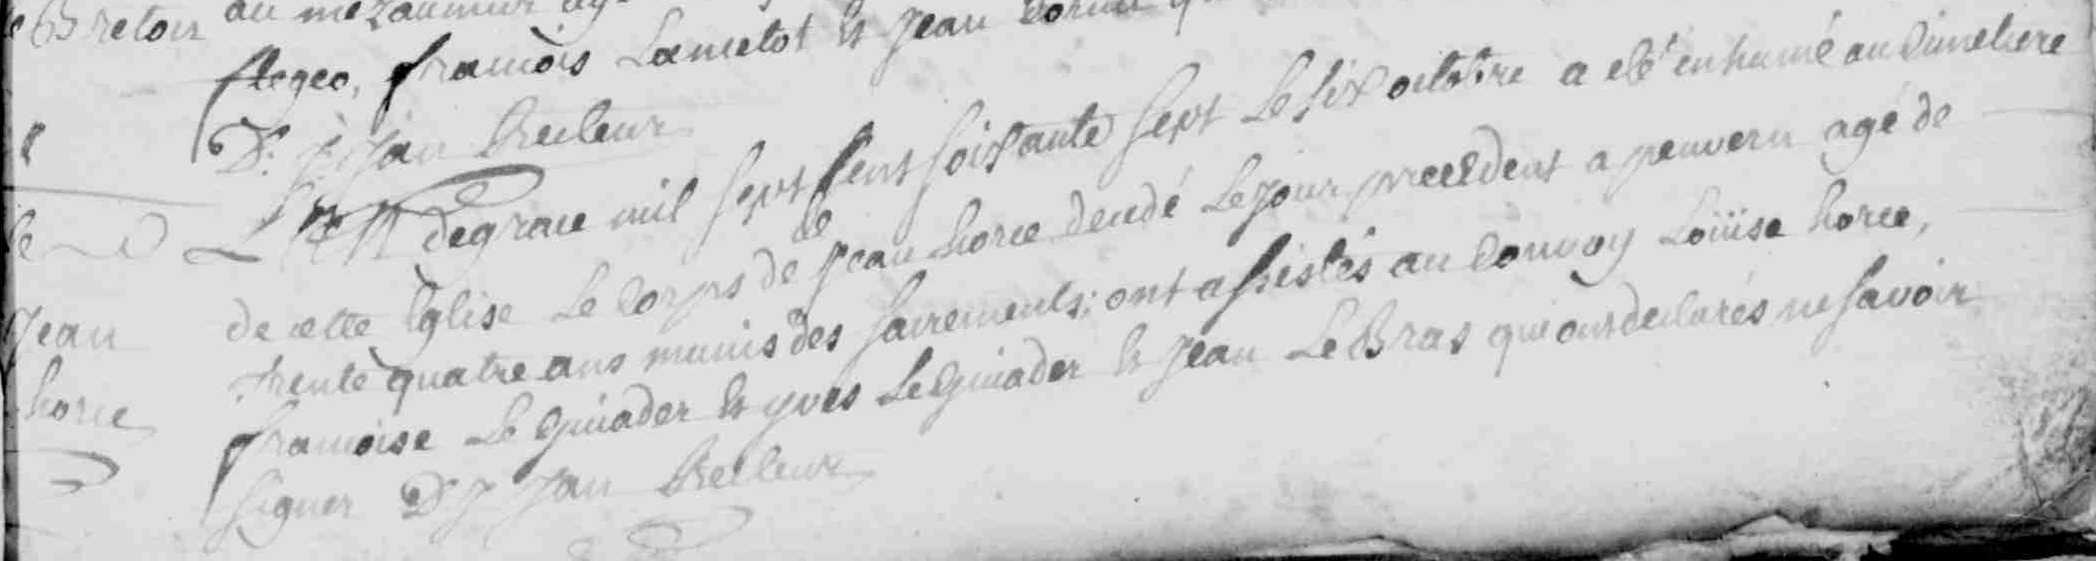 le Breton au mezaumur
stegeo, françois Lancelot et jean
D. J: jan Recteur
L'an degrace mil sept cent soixante sept Le six octobre a eté enhumé au Cimetiere
de cette Eglise Le Corps de jean horce decedé Le jour precedent a penvern agé de
jean
trente quatre ans munis des sacrements; ont assistés au Convoy Loüise horce,
horce
françoise Le Guiader et yves Le Guiader et jean Le Bras qui ont declarés ne savoir
signer D J jan Recteur